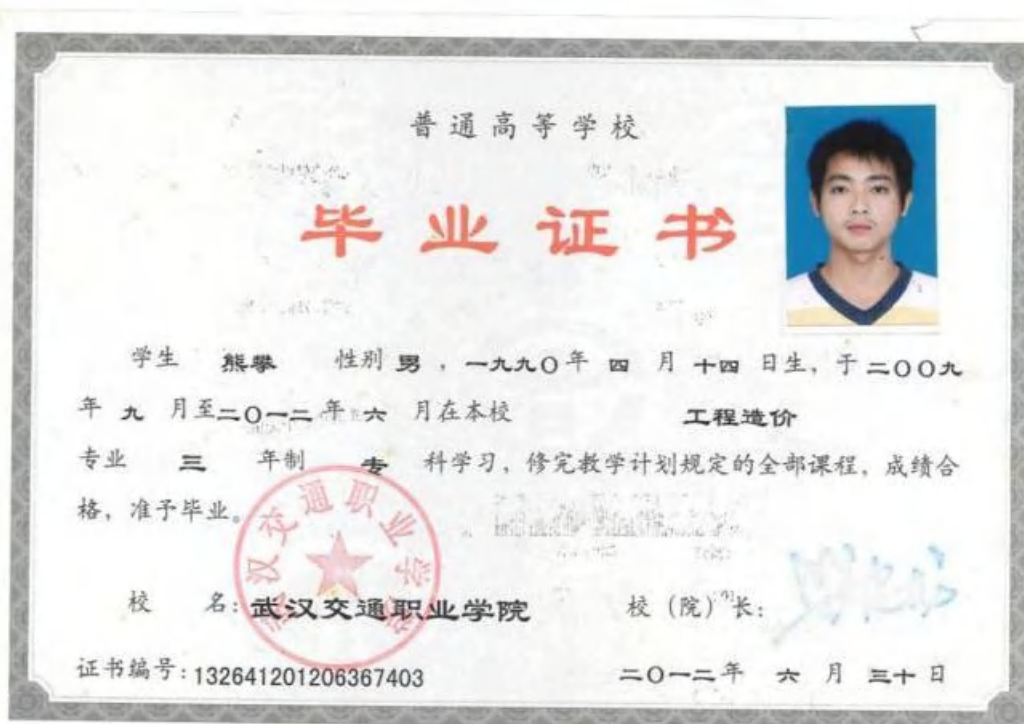 普通高等学校
毕业证书
学生 熊攀 性别 男，一九九〇年 四 月 十四 日生，于 二〇〇九
年 九 月至二〇一二年 六 月在本校 工程造价
专业 三 年制 专 科学习，修完教学计划规定的全部课程，成绩合
格，准予毕业。
武汉交通职业学院
校 名：武汉交通职业学院 校（院）长：
证书编号：132641201206367403 二〇一二年 六 月 三十 日